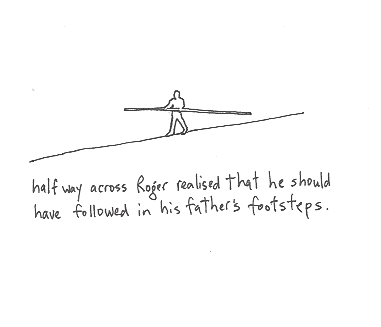 half way across Roger realised that he should
have followed in his father's footsteps.